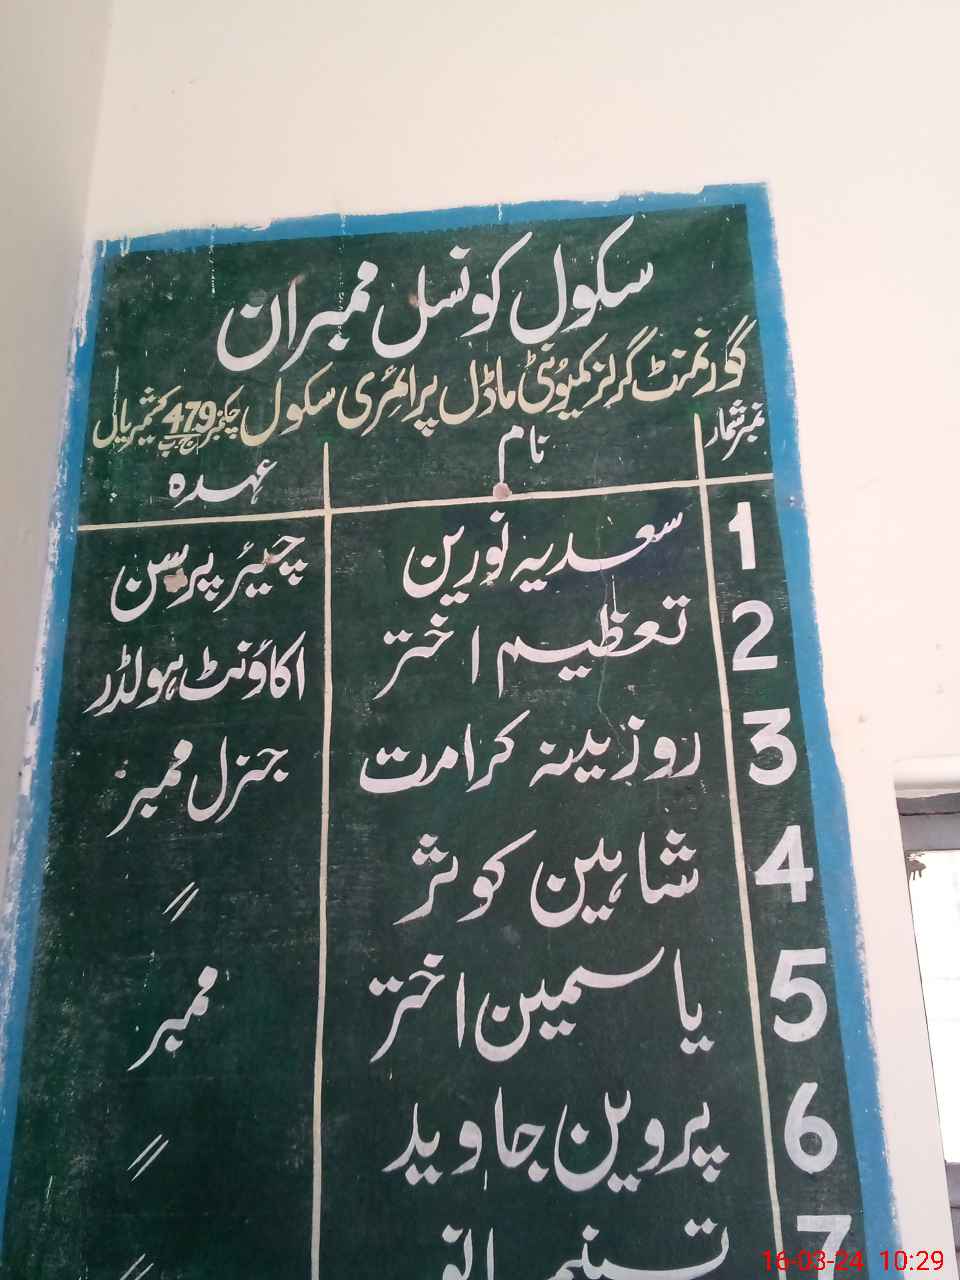 سکول کونسل ممبران
گورنمنٹ گرلز کمیونٹی ماڈل پرائمری سکول چکنمبر 479 ج ب کشمیریاں
نمبر شمار نام عہدہ
1 سعدیہ نورین چیئر پرسن
2 تعظیم اختر اکاؤنٹ ہولڈر
3 روزینہ کرامت جنرل ممبر
4 شاہین کوثر 〃
5 یاسمین اختر ممبر
6 پروین جاوید 〃
7 تسنیم 〃
16-03-24 10:29